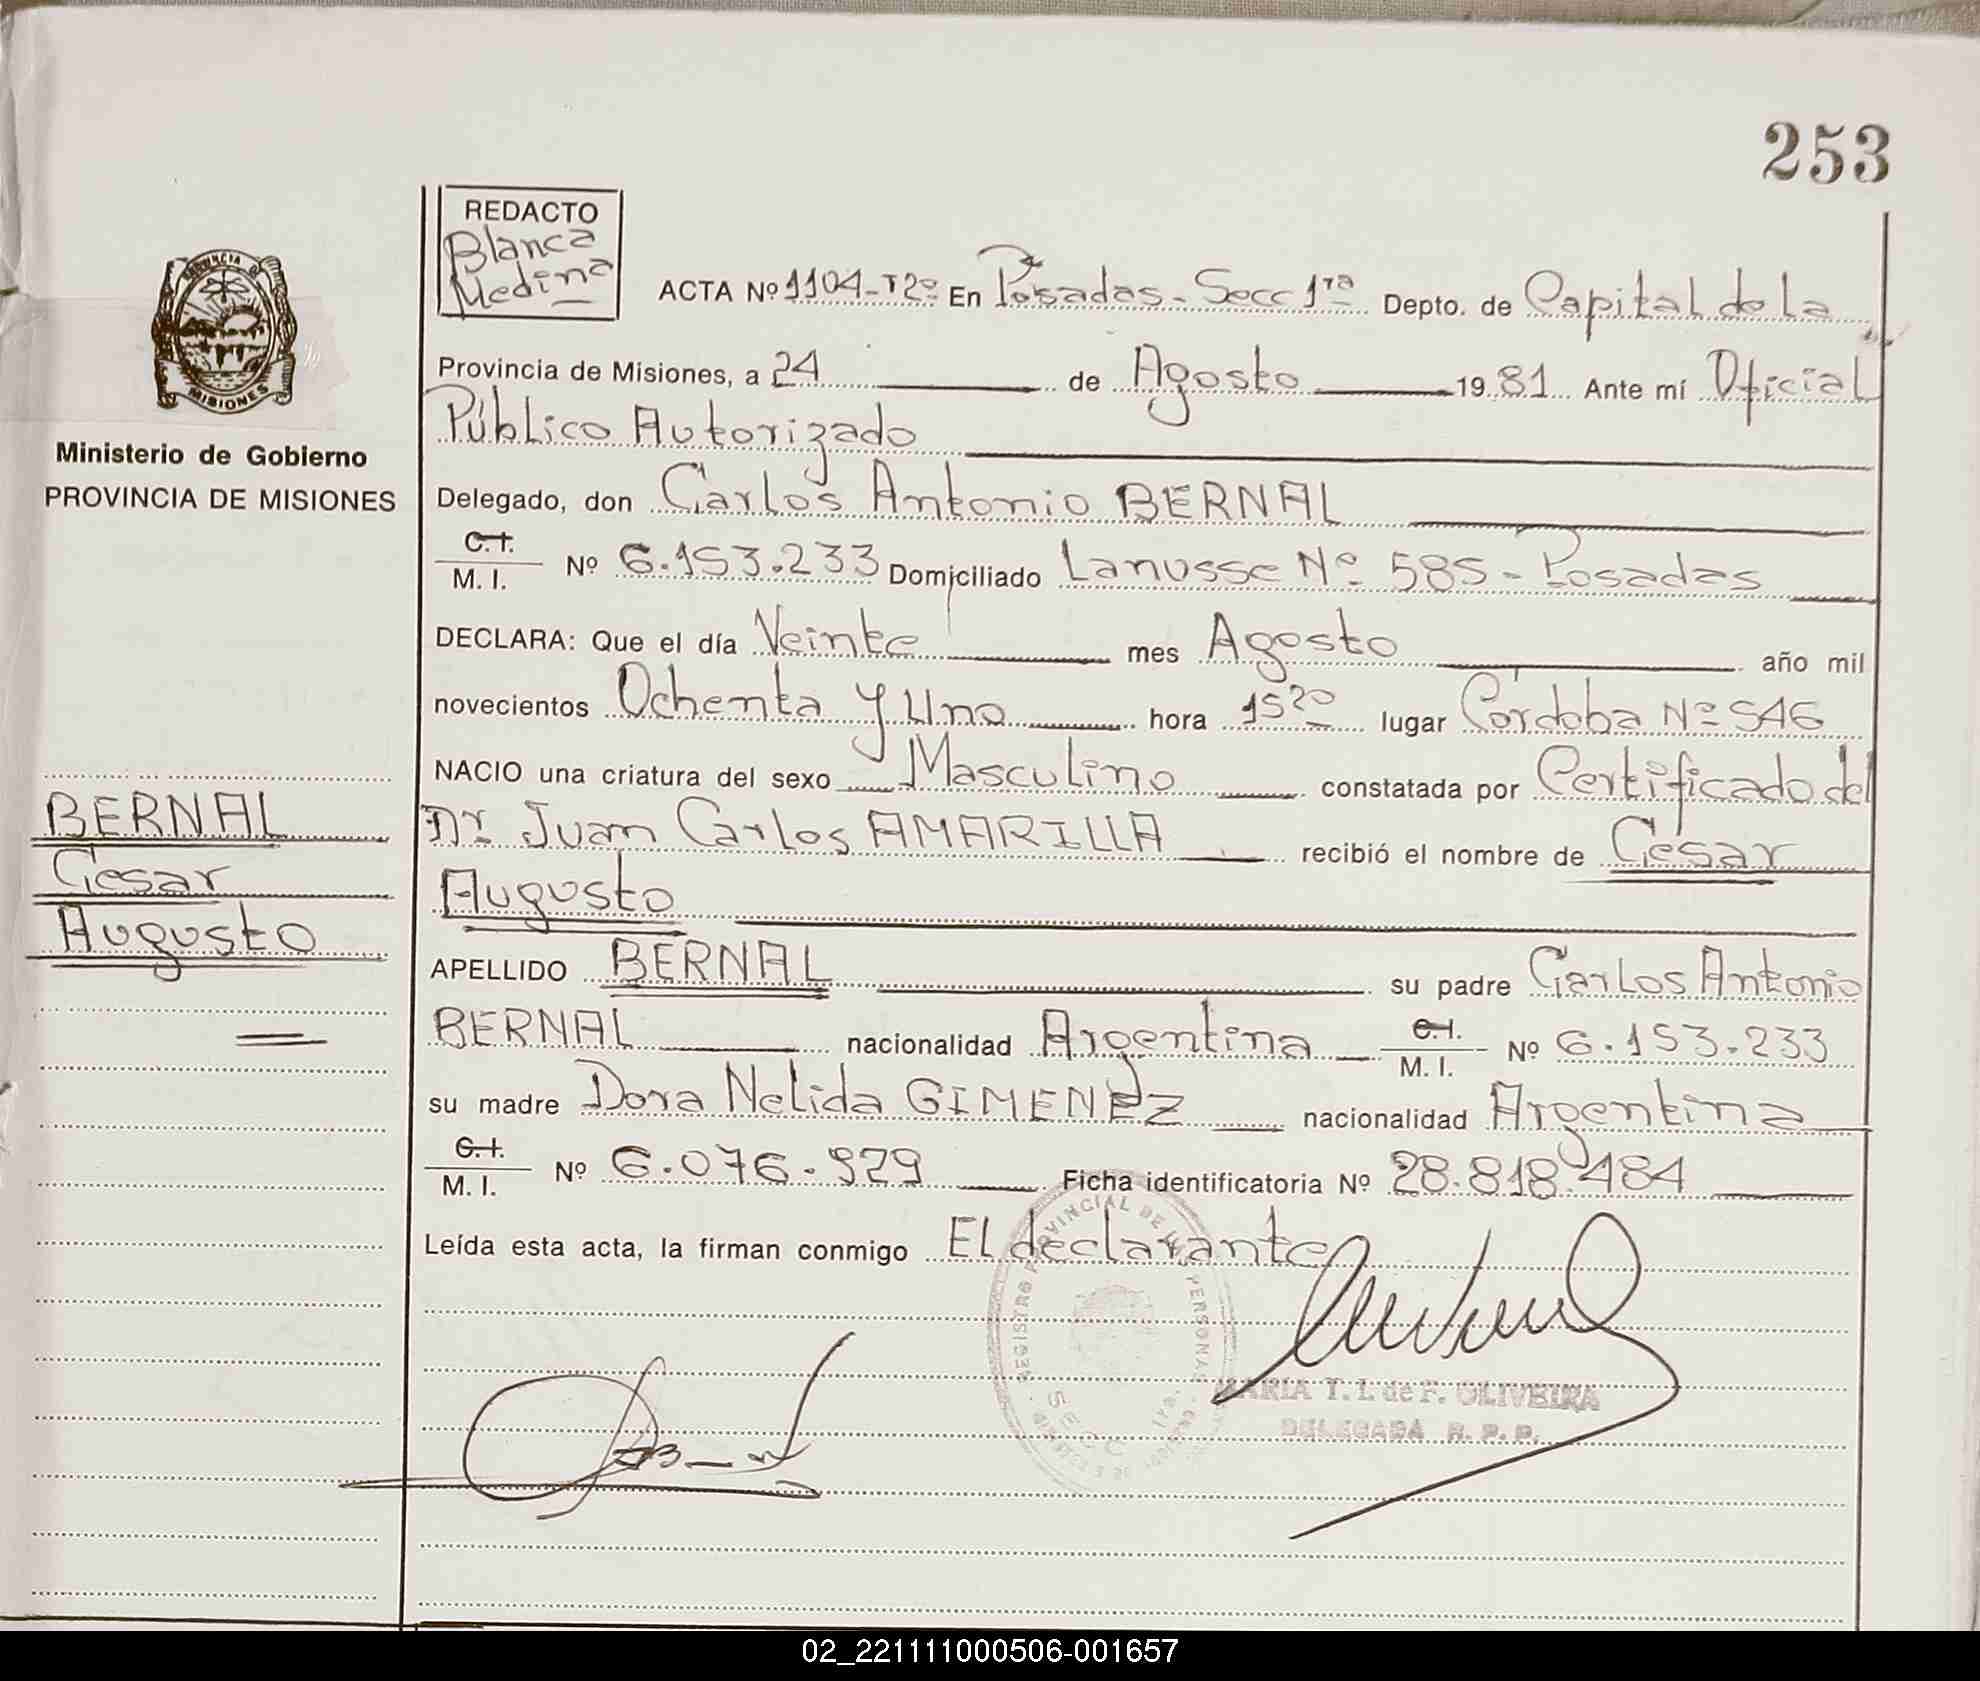 253
REDACTO
Blanca
Medina
PROVINCIA DE
MISIONES
ACTA Nº 1104-Tº2º En Posadas - Secc 1ra Depto. de Capital de la
Provincia de Misiones, a 24 de Agosto 1981 Ante mí Oficial
Público Autorizado
Ministerio de Gobierno
PROVINCIA DE MISIONES
Delegado, don Carlos Antonio BERNAL
C.I.
M. I. Nº 6.153.233 Domiciliado Lanusse Nº 585 - Posadas
DECLARA: Que el día Veinte mes Agosto año mil
novecientos Ochenta y Uno hora 1520 lugar Córdoba Nº 546
NACIO una criatura del sexo Masculino constatada por Certificado del
Dr. Juan Carlos AMARILLA recibió el nombre de César
Augusto
BERNAL
César
Augusto
APELLIDO BERNAL su padre Carlos Antonio
BERNAL nacionalidad Argentina C.I. M. I. Nº 6.153.233
su madre Dora Nelida GIMENEZ nacionalidad Argentina
C.I.
M. I. Nº 6.076.929 Ficha identificatoria Nº 28.818.484
Leída esta acta, la firman conmigo El declarante
REGISTRO PROVINCIAL DE LAS PERSONAS
SECC 1ra.
MARIA T. I. de F. OLIVEIRA
DELEGADA R. P. P.
02_221111000506-001657